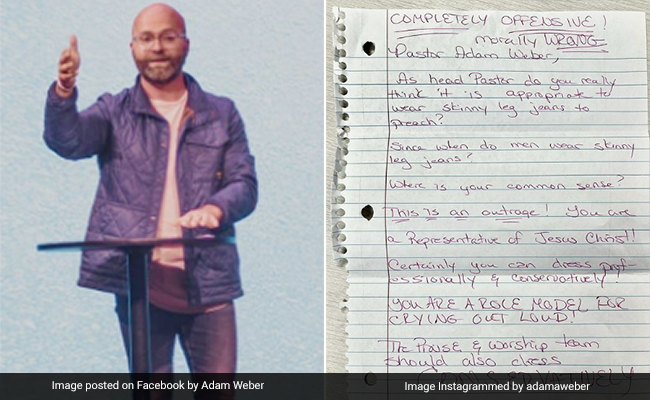 COMPLETELY OFFENSIVE!
morally WRONG
Pastor Adam Weber,
As head Pastor do you really
think it is appropriate to
wear skinny leg jeans to
preach?
Since when do men wear skinny
leg jeans?
Where is your common sense?
This is an outrage! You are
a Representative of Jesus Christ!
Certainly you can dress prof-
essionally & conservatively!
YOU ARE A ROLE MODEL FOR
CRYING OUT LOUD!
The Praise & Worship team
should also dress
CONSERVATIVELY
Image posted on Facebook by Adam Weber
Image Instagrammed by adamaweber